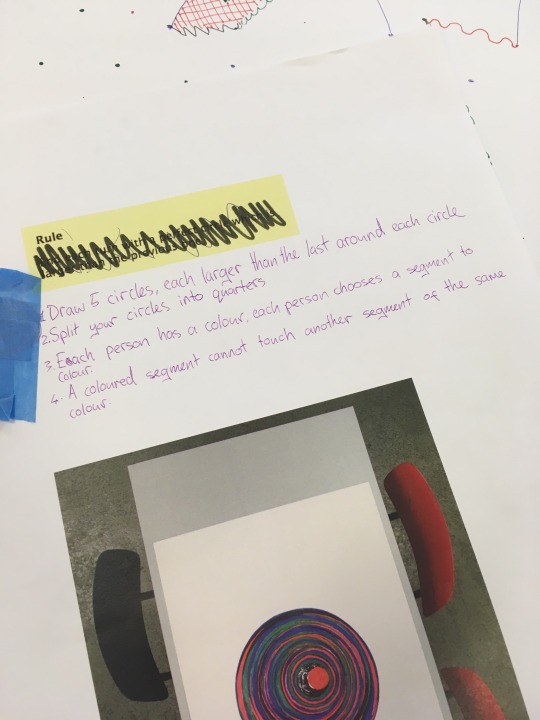 Rule
1. Draw 5 circles, each larger than the last around each circle
2. Split your circles into quarters
3. Each person has a colour, each person chooses a segment to
colour.
4. A coloured segment cannot touch another segment of the same
colour.